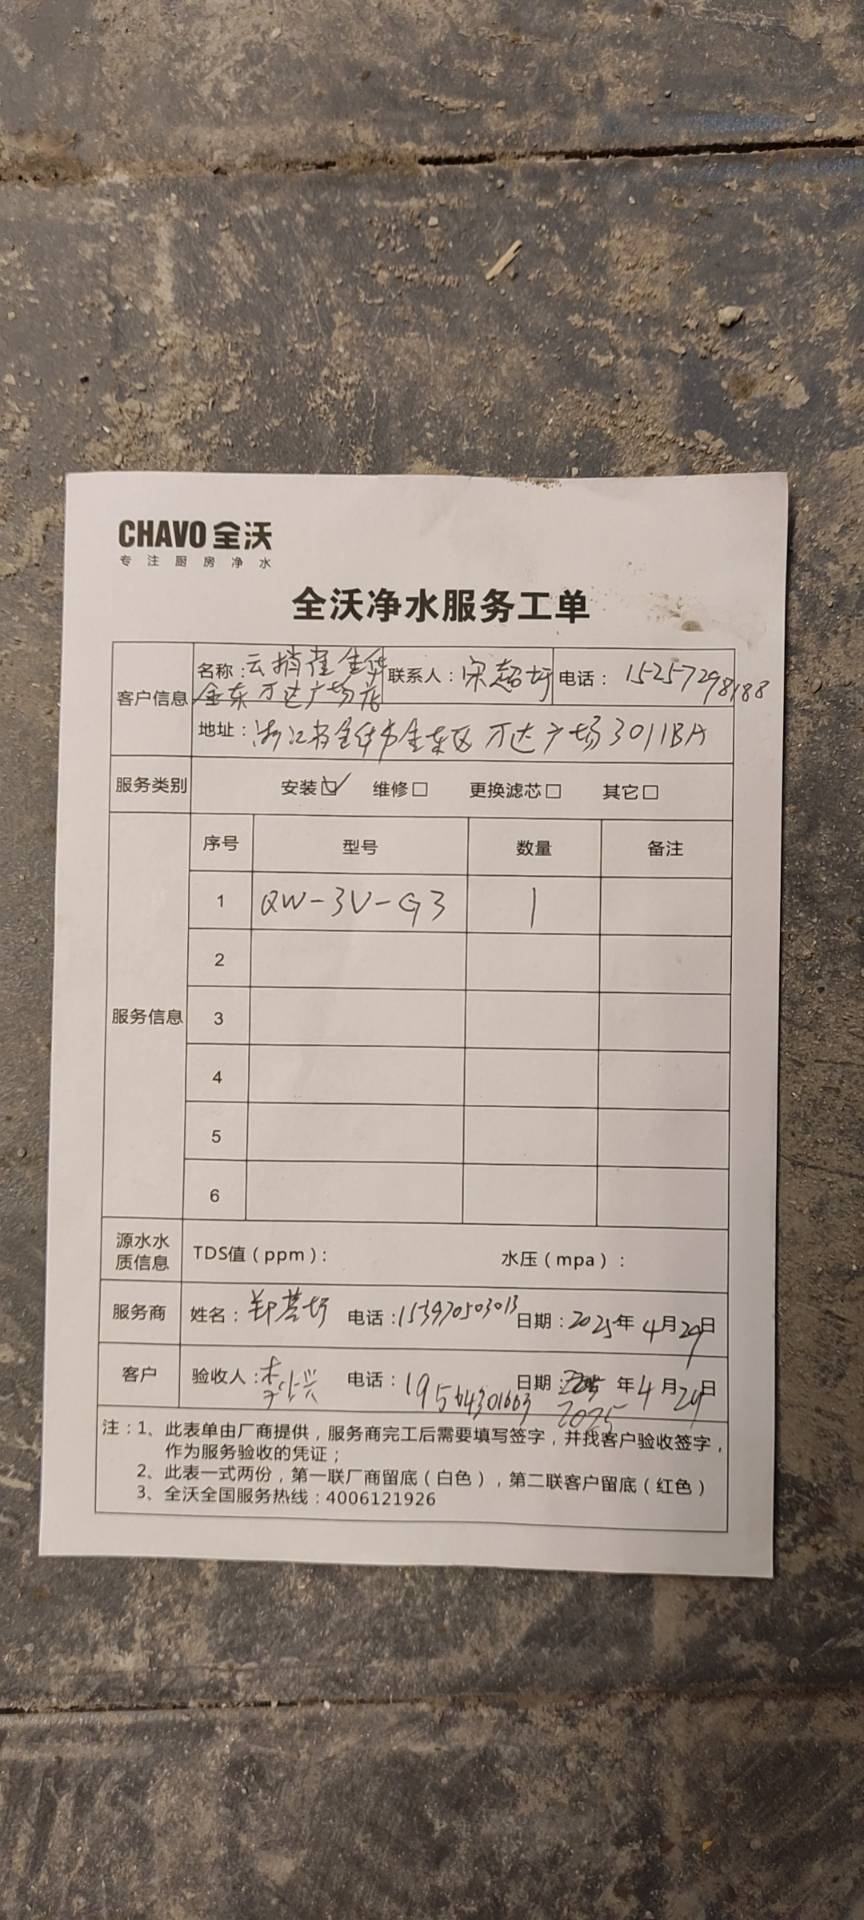 CHAVO 全沃
专注厨房净水
全沃净水服务工单
客户信息
名称：金华
金东万达广场店
联系人：宋超
电话：15257298188
地址：浙江省金华市金东区万达广场3011BA
服务类别 安装☑ 维修□ 更换滤芯□ 其它□
服务信息
序号 型号 数量 备注
1 QW-3V-G3 1
2
3
4
5
6
源水水质信息 TDS值（ppm）： 水压（mpa）：
服务商 姓名： 电话：153970503013 日期：2025年4月29日
客户 验收人：李 兴 电话：19564301663 日期：2025年4月29日
注：1、此表单由厂商提供，服务商完工后需要填写签字，并找客户验收签字，
作为服务验收的凭证；
2、此表一式两份，第一联厂商留底（白色），第二联客户留底（红色）
3、全沃全国服务热线：4006121926